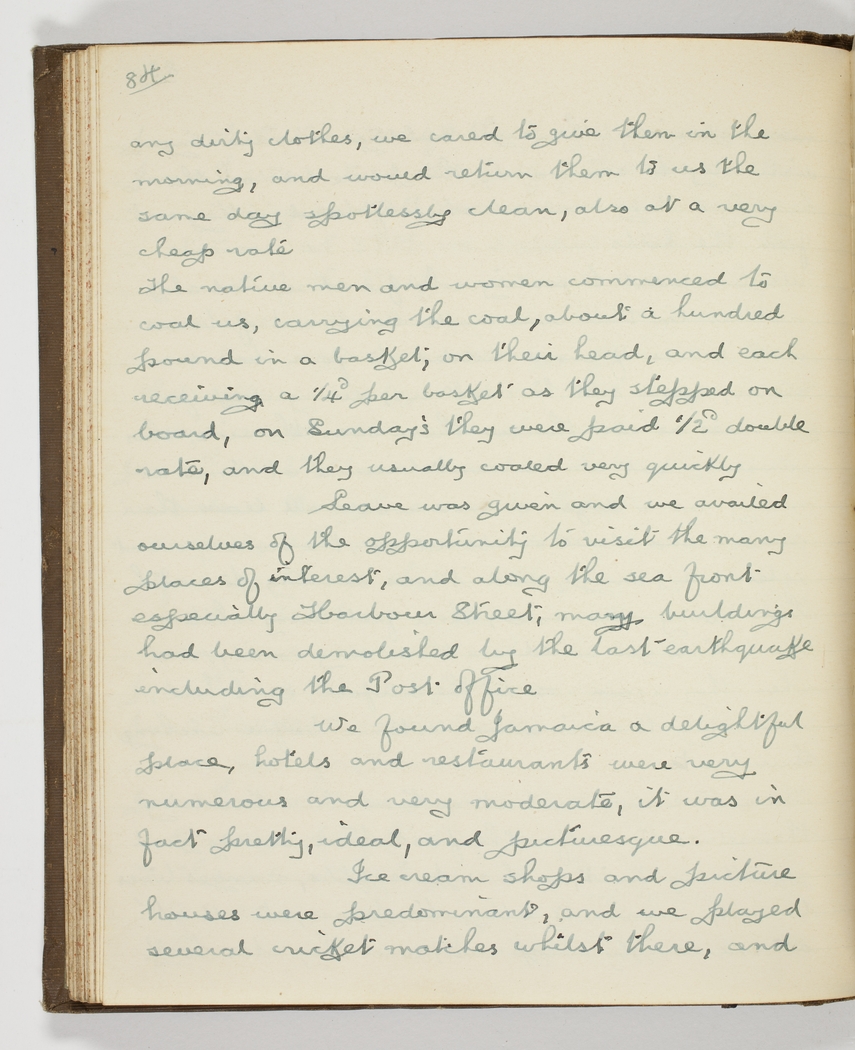 84
any dirty clothes, we cared to give them in the
morning, and would return them to us the
same day spotlessly clean, also at a very
cheap rate
The native men and women commenced to
coal us, carrying the coal, about a hundred
pound in a basket, on their head, and each
receiving a 1/4d per basket as they stepped on
board, on Sunday's they were paid 1/2d double
rate, and they usually coaled very quickly
Leave was given and we availed
ourselves of the opportunity to visit the many
places of interest, and along the sea front
especially Harbour Street, many buildings
had been demolished by the last earthquake
including the Post office
We found Jamaica a delightful
place, hotels and restaurants were very
numerous and very moderate, it was in
fact pretty, ideal, and picturesque.
Ice cream shops and picture
houses were predominant, and we played
several cricket matches whilst there, and